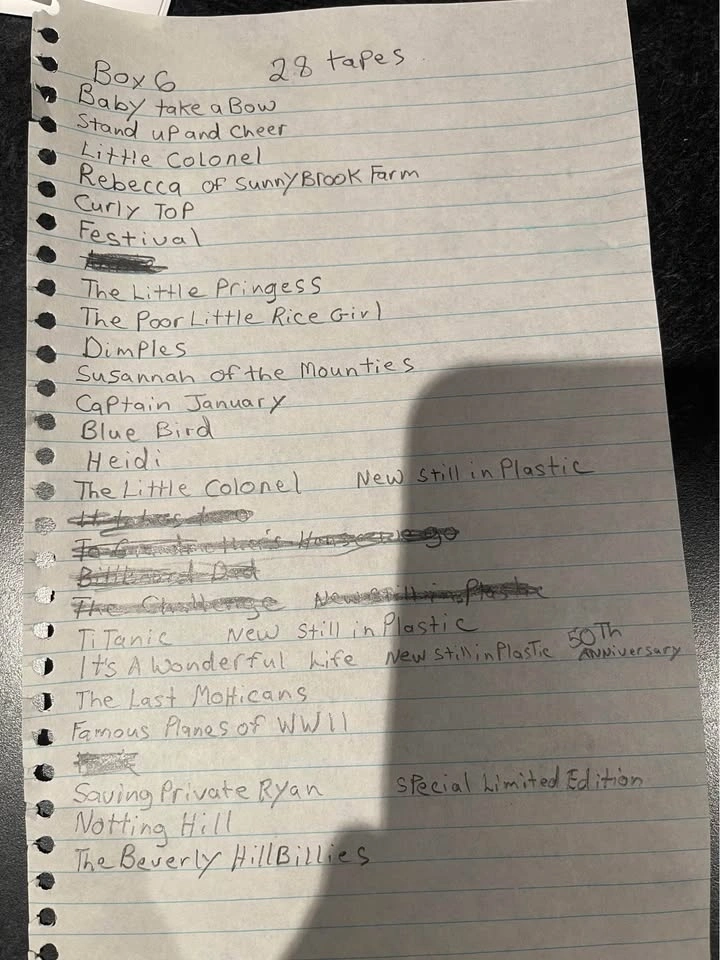 Box 6 28 tapes
Baby take a Bow
Stand up and cheer
Little Colonel
Rebecca of SunnyBrook Farm
Curly Top
Festival
The Little Pringess
The Poor Little Rice Girl
Dimples
Susannah of the Mounties
Captain January
Blue Bird
Heidi
The Little Colonel New still in Plastic
It takes two
To Grandmother's House we go
Billboard Dad
The Challenge New still in Plastic
TiTanic New Still in Plastic
It's A Wonderful Life New Still in Plastic 50Th Anniversary
The Last Mohicans
Famous Planes of WWII
Saving Private Ryan Special Limited Edition
Notting Hill
The Beverly HillBillies